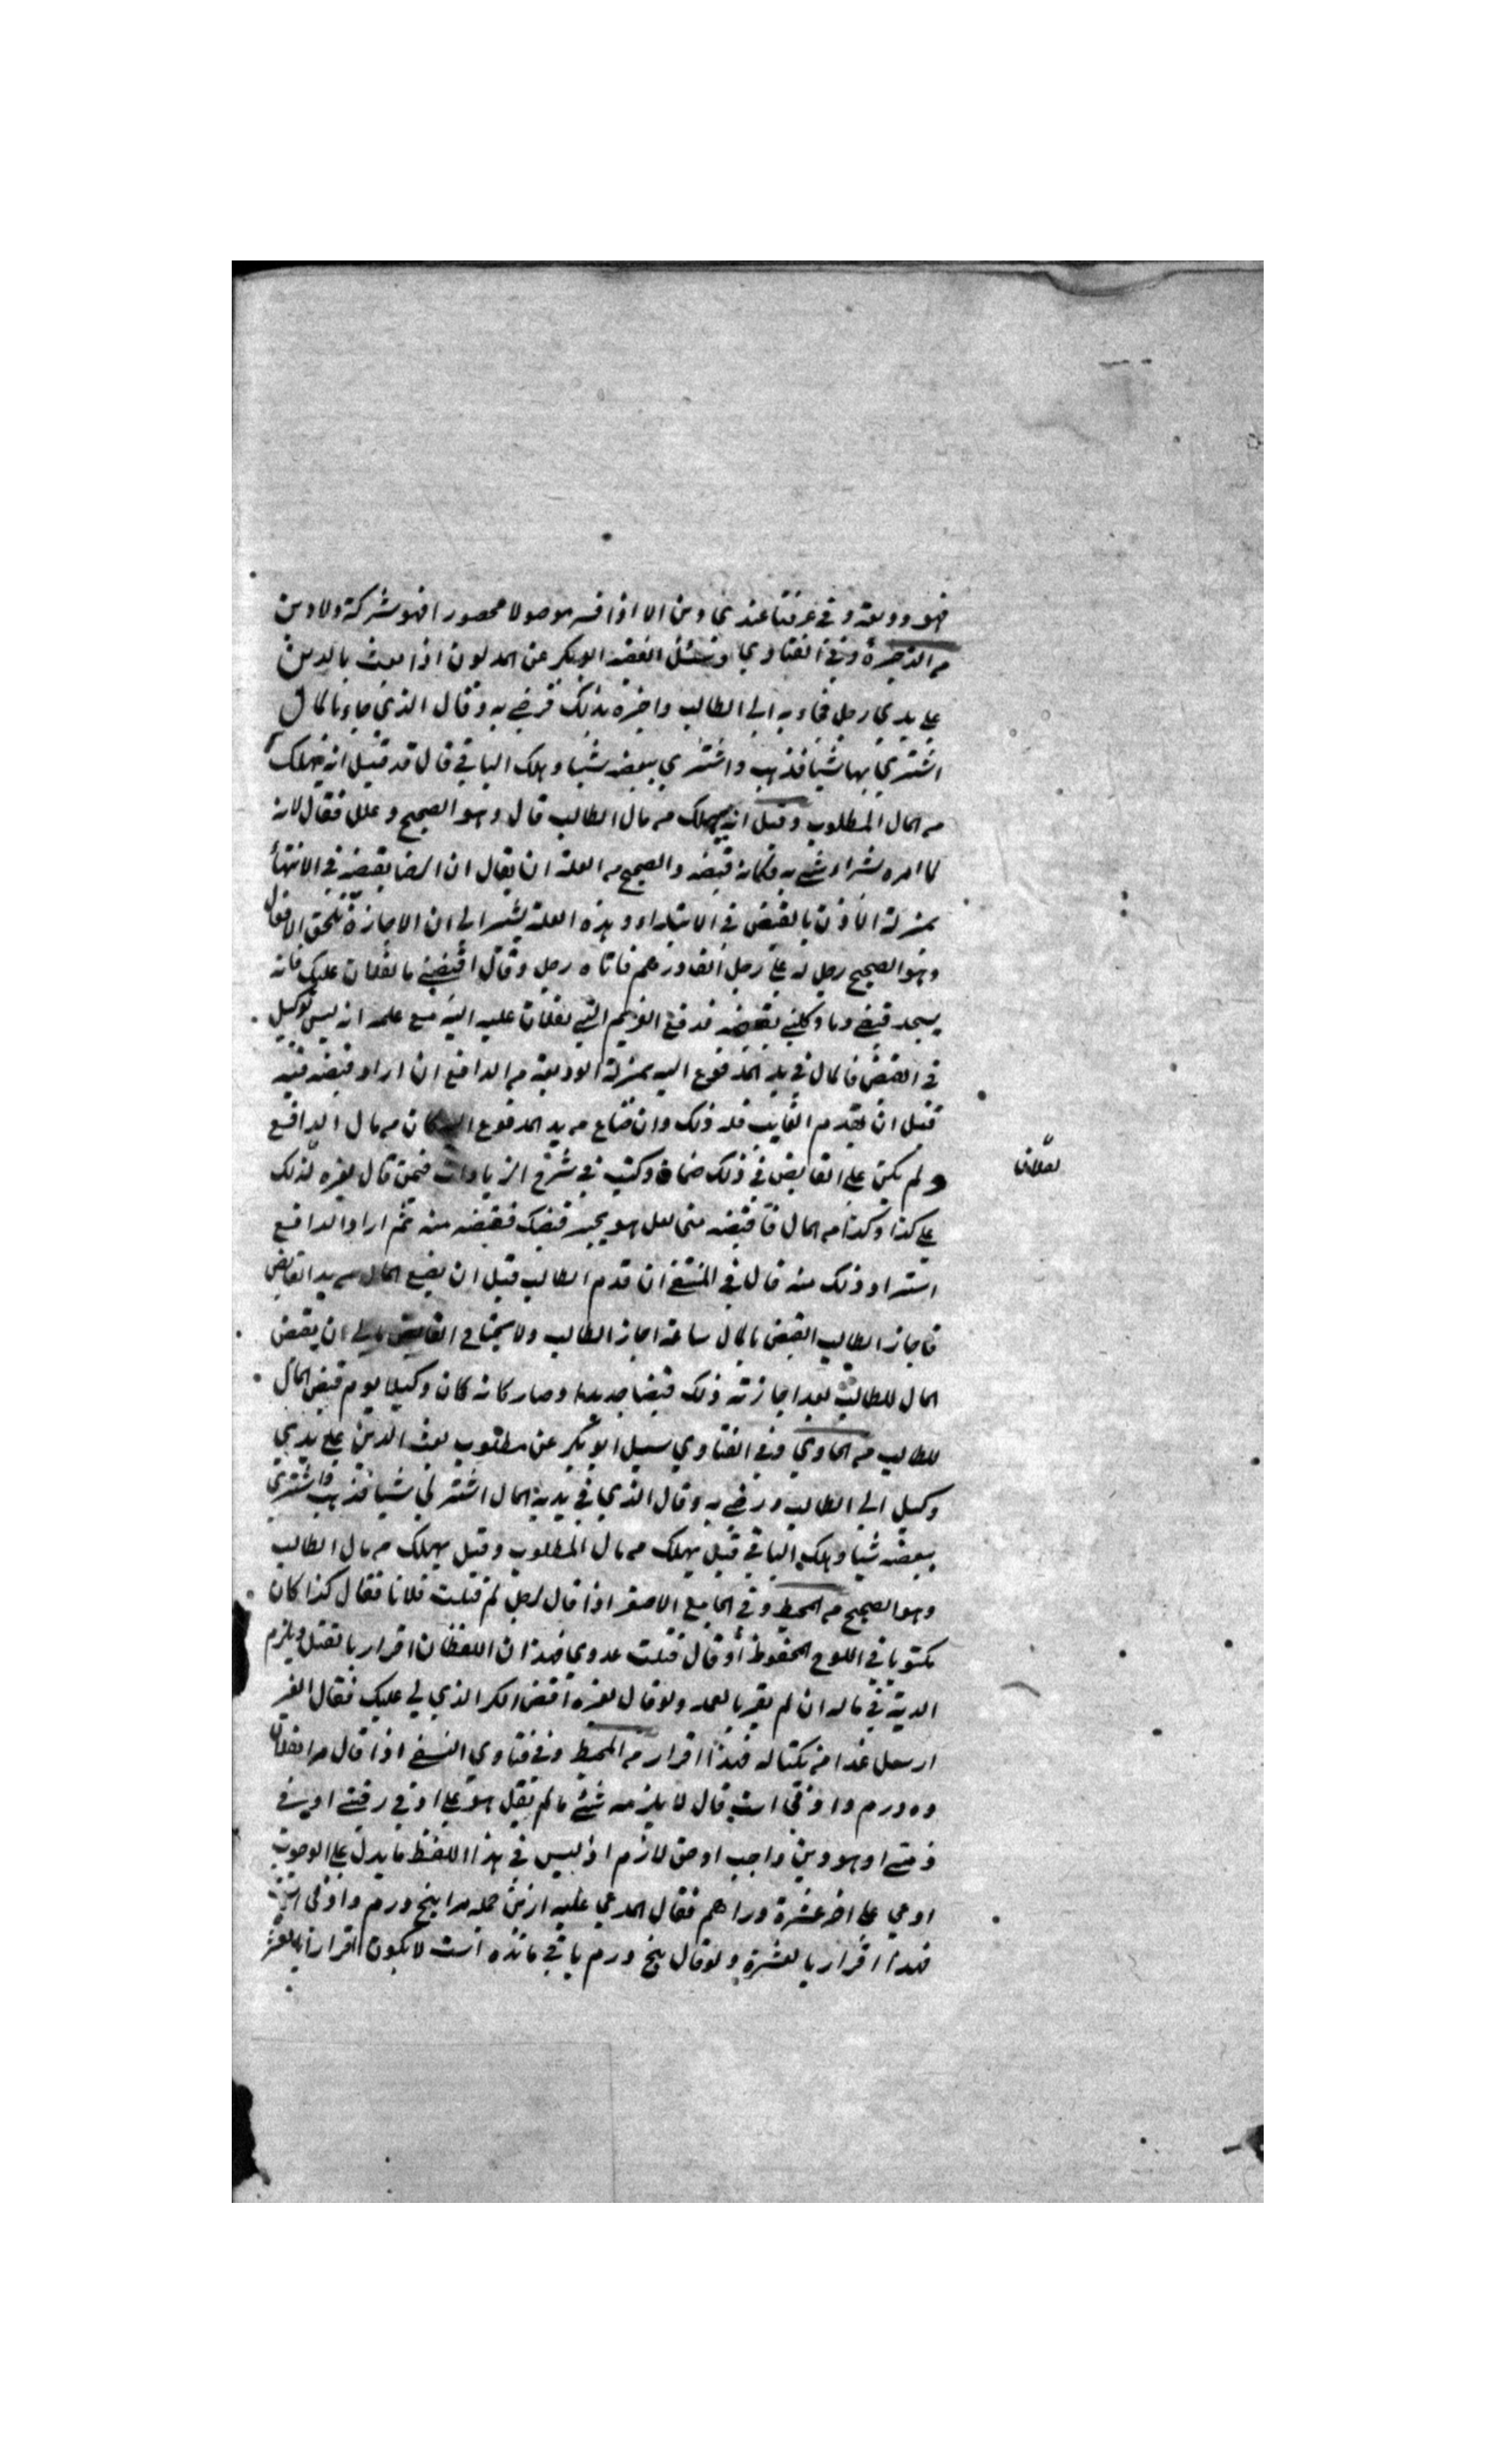 فهو وديعة وفي عرفنا عندي دين الا اذا فسر موصولا محصورا فهو شركة ولا دين
من الذخيرة وفي الفتاوي وسئل الفقيه ابوبكر عن المديون اذا بعث بالدين
علي يدي رجل فجاء به الي الطالب واخبره بذلك فرضي به وقال الذي جاء بالمال
اشتري بها شيا فذهب واشتري ببعضه شيا وهلك الباقي قال قد قيل انه يهلك
من المال المطلوب وقيل انه يهلك من مال الطالب قال وهو الصحيح وعلل فقال لانه
لما امره بشراء شي به فكانه قبضه والصحيح من العلة ان يقال ان الرضا بقبضه في الانتهاء
بمنزلة الاذن بالقبض في الابتداء وهذه العلة يشير الي ان الاجازة تلحق الافعال
وهو الصحيح رجل له علي رجل الف درهم فاتاه رجل وقال اقبضني ما لفلان عليك فانه
سيجد قبضي وما وكلني بقبضه فدفع الغريم التي لفلان عليه اليه مع علمه انه ليس بوكيل
في القبض فالمال في يد المدفوع اليه بمنزلة الوديعة من الدافع ان اراد قبضه منه
قبل ان يقدم الغايب فله ذلك وان ضاع من يد المدفوع اليه كان من مال الدافع
ولم يكن علي القابض في ذلك ضمان وكتب في شرح الزيادات فيمن قال لغيره لذلك
لفلان
علي كذا وكذا من المال فاقبضه مني لعل هو يجيز قبضك فقبضه منه ثم اراد الدافع
استرداد ذلك منه قال في المنتقي ان قدم الطالب قبل ان يضيع المال من يد القابض
فاجاز الطالب القبض بالمال ساعة اجاز الطالب ولا يحتاج القابض الي ان يقبض
المال للطالب بعد اجازته ذلك قبضا جديدا وصار كانه كان وكيلا يوم قبض المال
للطالب من الحاوي وفي الفتاوي سيل ابوبكر عن مطلوب بعث الدين علي يدي
وكيل الي الطالب ورضي به وقال الذي في يديه المال اشتر لي شيا فذهب واشتري
ببعضه شيا وهلك الباقي قيل يهلك من مال المطلوب وقيل يهلك من مال الطالب
وهو الصحيح من المحيط وفي الجامع الاصغر اذا قال لرجل لم قتلت فلانا فقال كذا كان
مكتوبا في اللوح المحفوظ أو قال قتلت عدوي فهذان اللفظان اقرار بالقتل ويلزم
الدية في ماله ان لم يقر بالعمد ولو قال لغيره اقض الكر الذي لي عليك فقال الغير
ارسل غدا من يكتاله فهذا اقرار من المحيط وفي فتاوي النسفي اذا قال مرا بفلان
ده درم دادني است قال لا يلزمه شئ ما لم يقل هو علي او في رقبتي او في
ذمتي او هو دين واجب او حق لازم اذ ليس في هذا اللفظ ما يدل علي الوجوب
ادعي علي اخر عشرة دراهم فقال المدعي عليه ازين جمله مرا پنج درم دادني است
فهذا اقرار بالعشرة ولو قال پنج درم باقي مانده است لا يكون اقرارا بالعشر